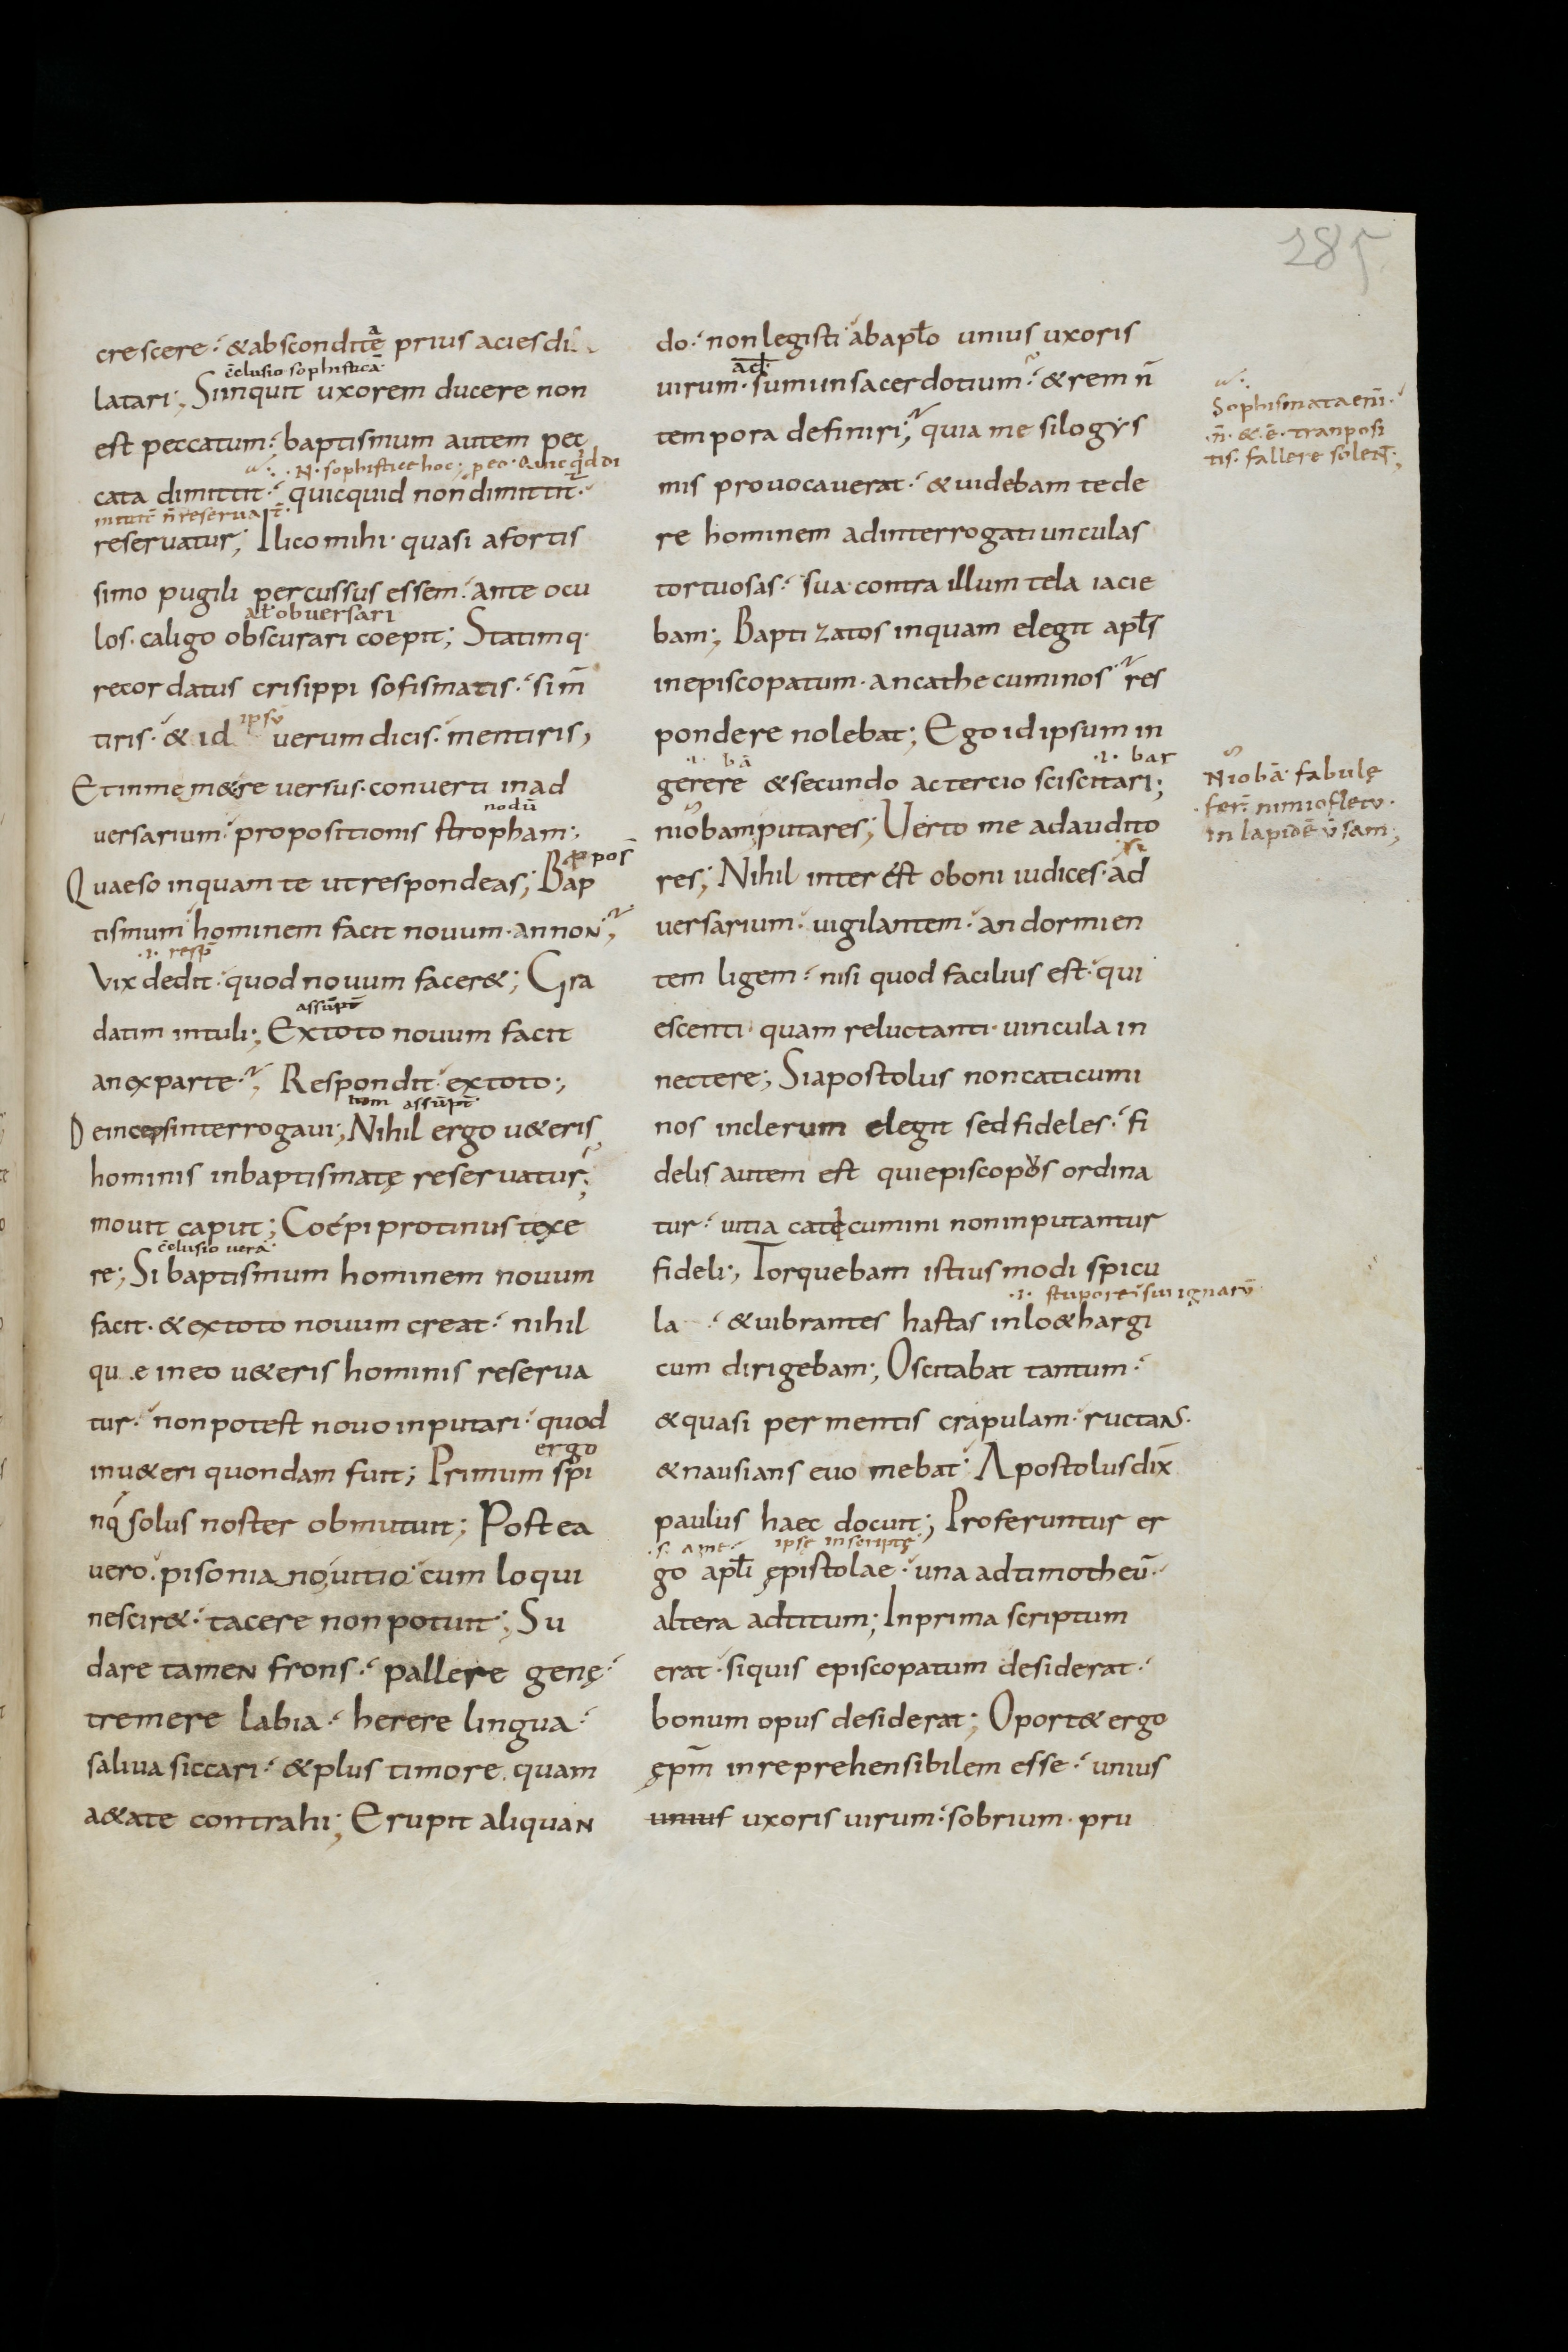 285
crescere. & absconditae prius acies di
c̄clusio sophisticā
latari; Si inquit uxorem ducere non
est peccatum. baptismum autem pec
.N. sophistice hoc; peo. Quicq̄d di
cata dimittit. quicquid non dimittit.
mittit n̄ reseruat̄
reseruatur; Ilico mihi. quasi a fortis
simo pugili percussus essem. ante ocu
al obuersari
los. caligo obscurari coepit; Statimq.
recordatus crisippi sofismatis. si m̄
ipsū
tiris. & id uerum dicis. mentiris;
Et in memetre uersus. conuerti in ad
nodū
uersarium. propositionis stropham;
ꝓpos̄
Quaeso inquam te ut respondeas; Bap
tismum hominem facit nouum. an noN;
.i. resp̄
Vix dedit. quod nouum facer&; Gra
datim intuli; Ex toto nouum facit
assūpt̄
an ex parte; Respondit ex toto;
assūpt̄
Deinceps interrogaui; Nihil ergo u&eris
hominis in baptismatę reseruatur;
mouit caput; Coepi protinus texe
c̄clusio uera
re; Si baptismum hominem nouum
facit. & ex toto nouum creat. nihil
qu e in eo u&eris hominis reserua
tur. non potest nouo inputari. quod
ergo
in u&eri quondam fuit; Primum spi
nosolus noster obmutuit; Postea
uero. pisoniano uitio. cum loqui
nescir&. tacere non potuit; Su
dare tameN frons. pallere genę.
tremere labia. herere lingua.
saliua siccari. & plus timore. quam
a&ate contrahi; Erupit aliquaN
do. non legisti ab apl̄o unius uxoris
uirum. sumi in sacerdotium. & rem n̄
tempora definiri; quia me silogys
mis prouocauerat. & uidebam tede
re hominem ad interrogatiunculas
tortuosas. sua contra illum tela iacie
bam; Baptizatos inquam elegit apl̄s
in episcopatum. an cathecuminos res
pondere nolebat; Ego id ipsum in
.i. bā .i. bar
gerere & secundo ac tercio sciscitari;
niobam putares; Uerto me ad audito
res; Nihil interest o boni iudices. ad
uersarium. uigilantem. an dormien
tem ligem. nisi quod facilius est. qui
escenti. quam reluctanti. uincula in
nectere; Si apostolus non caticumi
nos in clerum elegit sed fideles. fi
delis autem est qui episcopos ordina
tur. uitia catecumini non inputantur
fideli; Torquebam istius modi spicu
.i. stupore sui ignarū
la . & uibrantes hastas in lo&hargi
cum dirigebam; Oscitabat tantum.
& quasi per mentis crapulam. ructaNS.
& nausians euomebat. Apostolus dix̄
paulus haec docuit; Proferuntur er
.s. a me ipsę inscriptę
go apl̄i ępistolae. una ad timotheū.
altera ad titum; In prima scriptum
erat. si quis episcopatum desiderat.
bonum opus desiderat; Oport& ergo
ępm̄ inreprehensibilem esse. unius
unius uxoris uirum. sobrium. pru
Sophismata eni.
.n̄. & .ē. tranposi
tis. fallere solent;
Niobā fabulę
fer̄. nimio fletu.
in lapidē ūsam;